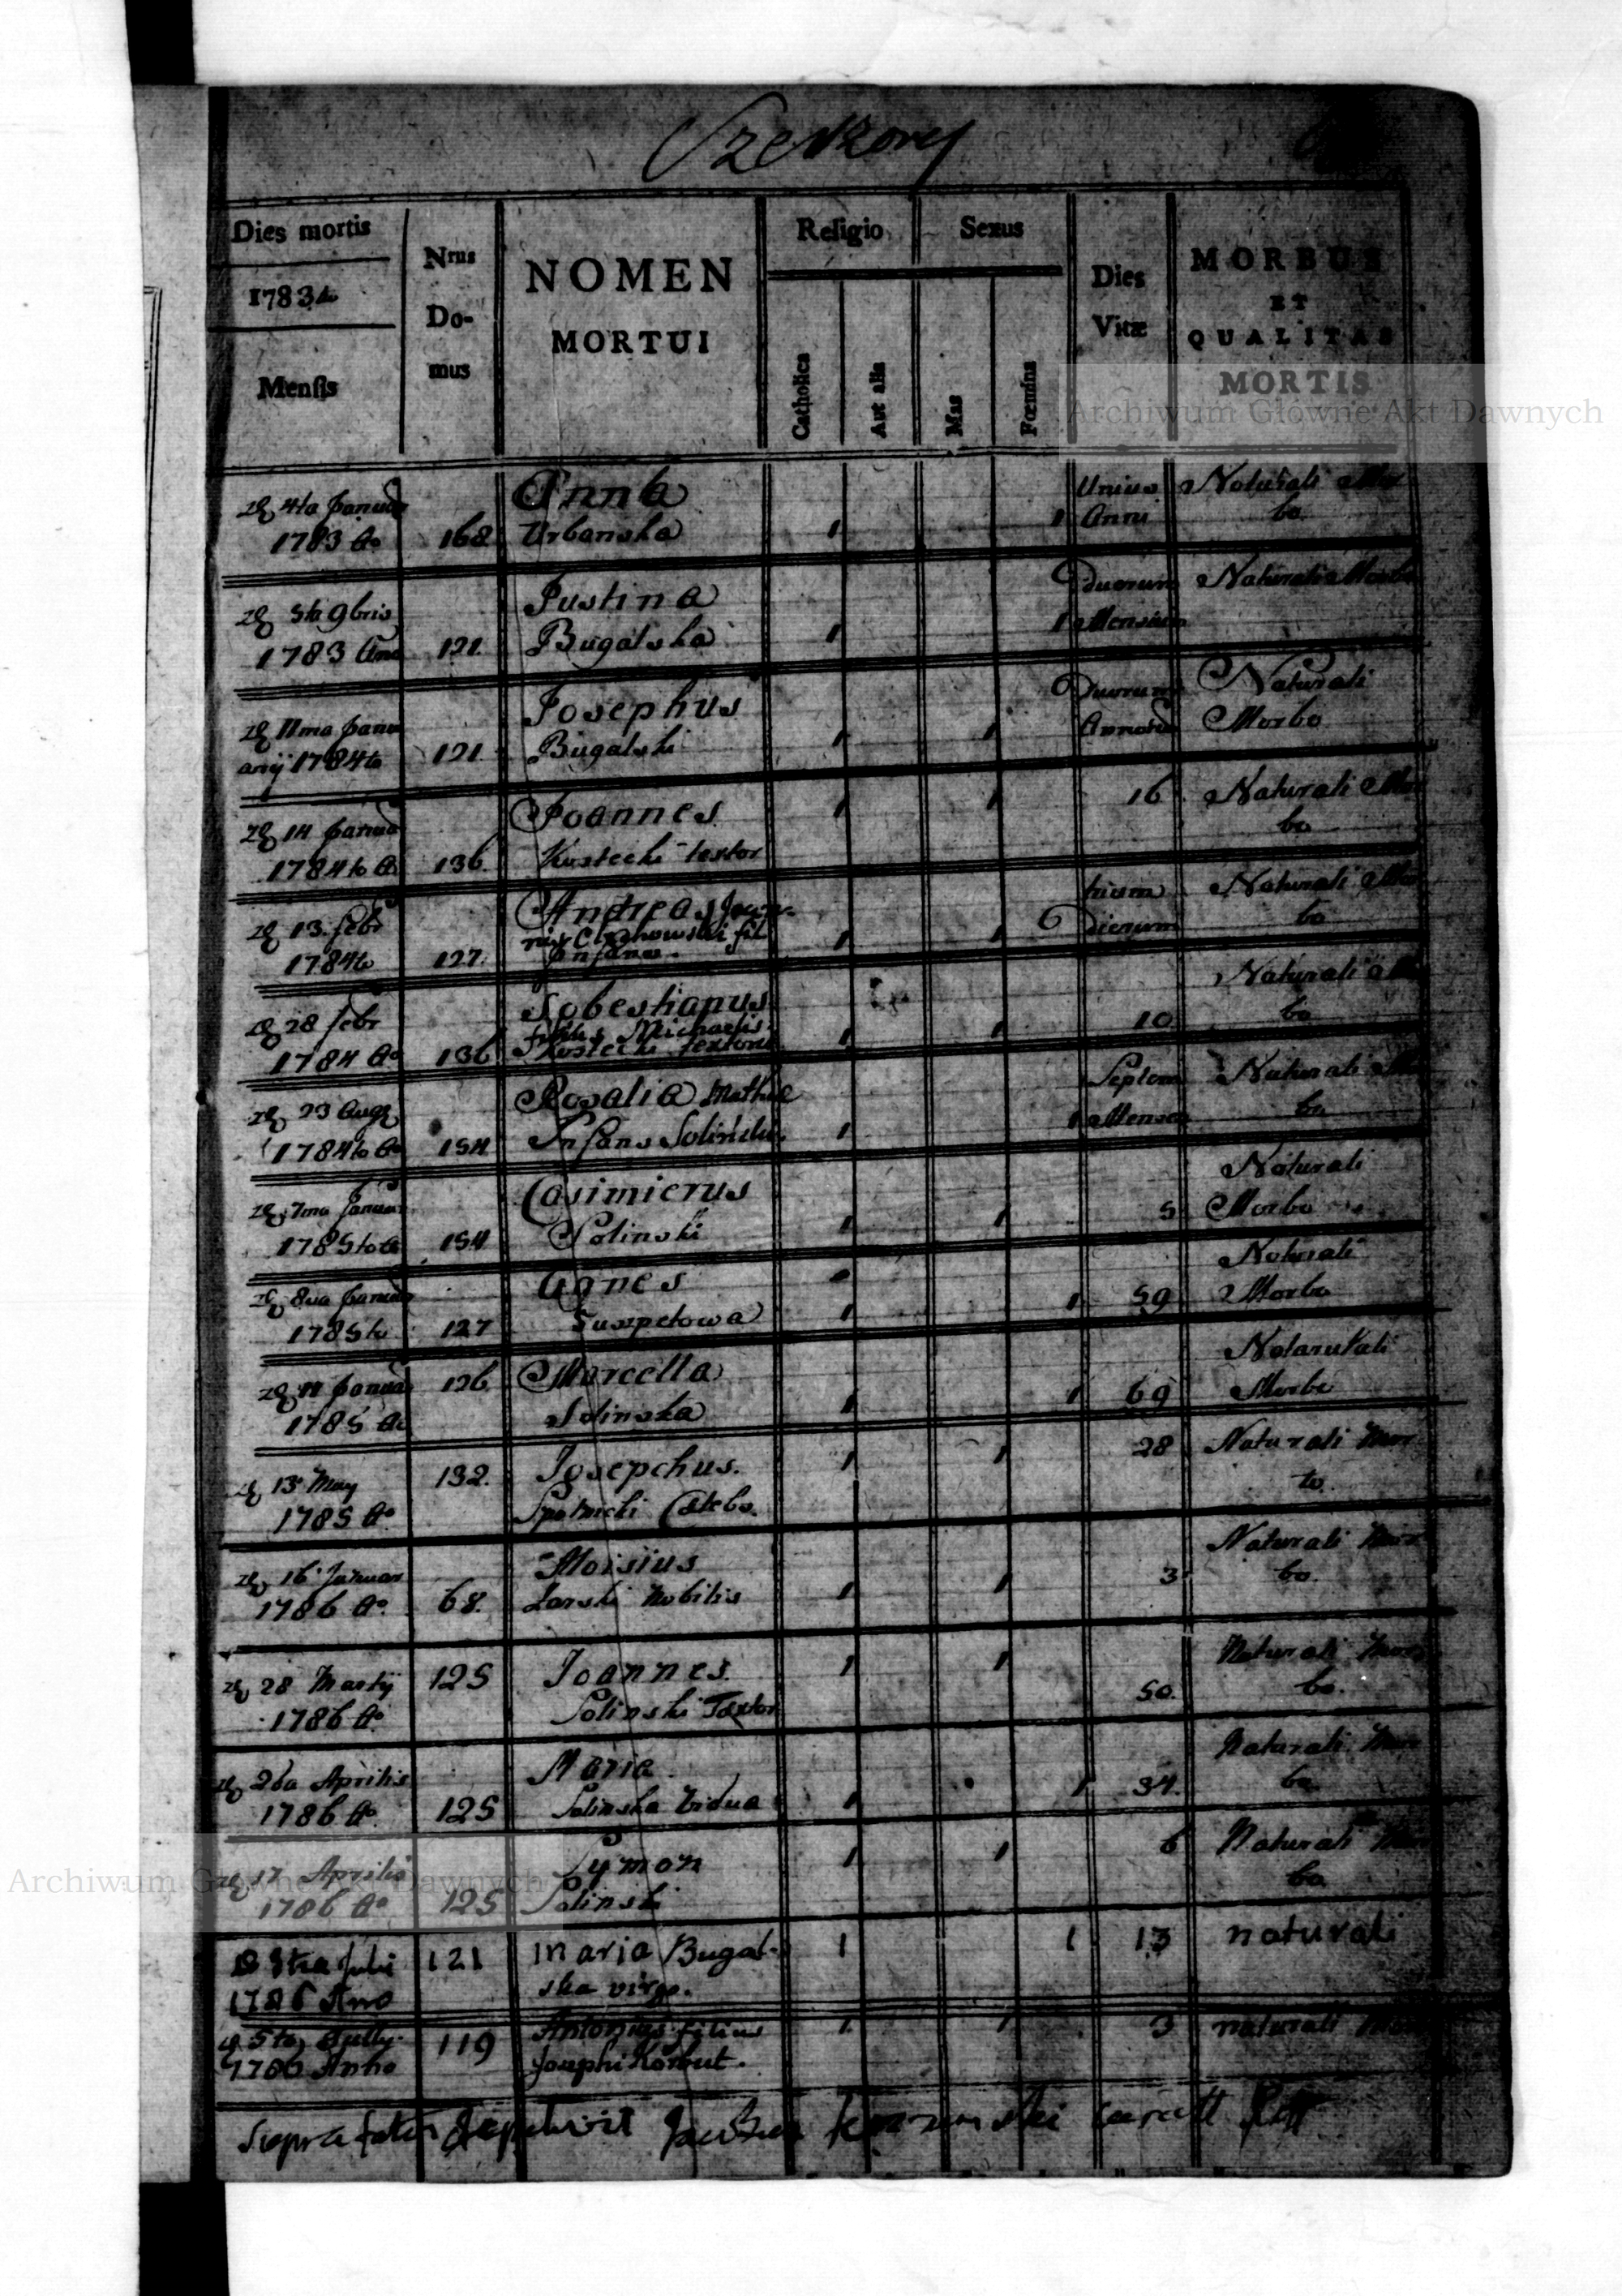 Dies mortis
1783
Mensis
Nrus
Do-
mus
NOMEN
MORTUI
Religio
Catholica
Aut alia
Sexus
Mas
Fœmina
Dies
Vitæ
MORBUS
ET
QUALITAS
MORTIS
Archiwum Główne Akt Dawnych
4ta Januar
1783 Ao
168
Anna
Urbanska
1
1
Unius
Anni
Naturali Mor
bo
5ta 9bris
1783 Ano
121
Justina
Bugalska
1
1
Duorum
Mensium
Naturali Morbo
11ma Janu
arij 1784to
121
Josephus
Bugalski
1
1
Duorum
Annorum
Naturali
Morbo
14 Januar
1784to Ao
136
Joannes
Kostecki textor
1
1
16
Naturali Mor
bo
13 febr
1784to
127
Andreas Joan-
nis fil
Infans
1
1
trium
Dierum
Naturali Mor
bo
28 febr
1784 Ao
136
Sobestianus
filius Michaelis
Kostecki textoris
1
1
10
Naturali Mor
bo
23 Aug
1784to Ao
154
Rosalia Mathie
Infans Solinski
1
1
Septem
Mensium
Naturali Mor
bo
7ma Januar
1785to Ao
154
Casimierus
Solinski
1
1
5
Naturali
Morbo
8va Januar
1785to
127
Agnes
1
1
59
Naturali
Morbo
11 Januar
1785 Ao
126
Marcella
Solinska
1
1
69
Morbo
13 May
1785 Ao
132
Josepchus
1
1
28
Naturali Mor
bo
16 Januar
1786 Ao
68
Aloisius
Larski Nobilis
1
1
3
Naturali Mor
bo
28 Martij
1786 Ao
125
Joannes
Solinski Textor
1
1
50
Naturali Mor
bo
26a Aprilis
1786 Ao
125
Maria
Solinska Vidua
1
1
34
Naturali Mor
bo
17 Aprilis
1786 Ao
125
Symon
Solinski
1
1
6
Naturali Mor
bo
Archiwum Główne Akt Dawnych
Julii
1786 Ano
121
Maria Bugal-
ska virgo.
1
1
13
naturali
5ta
1786 Anno
119
Antonius filius
Josephi Korbut.
1
1
3
naturali Mor